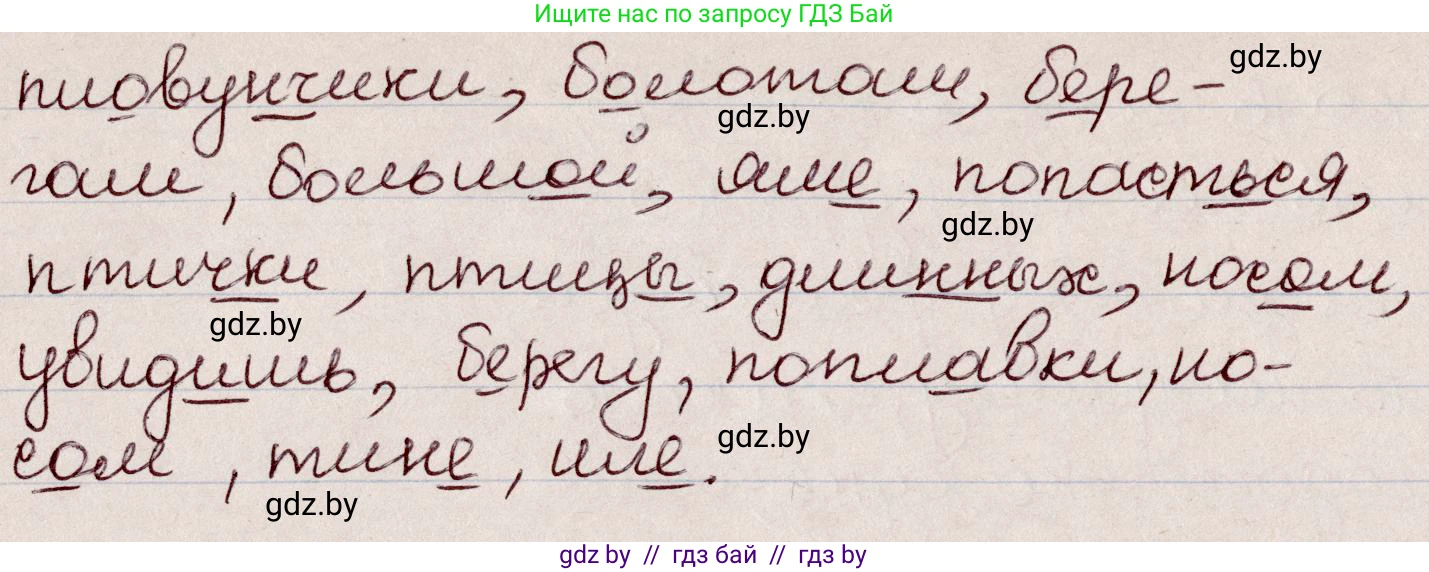 Ищите нас по запросу ГДЗ Бай
пловунчики, болотам, бере-
gdz.by
gdz.by
гам, большой, яме, попасться,
gdz.by
птички, птицы, длинных, носом,
gdz.by
увидишь, берегу, поплавки, но-
сом, тине, иле.
gdz.by
gdz.by
gdz by // гдз бай // гдз by